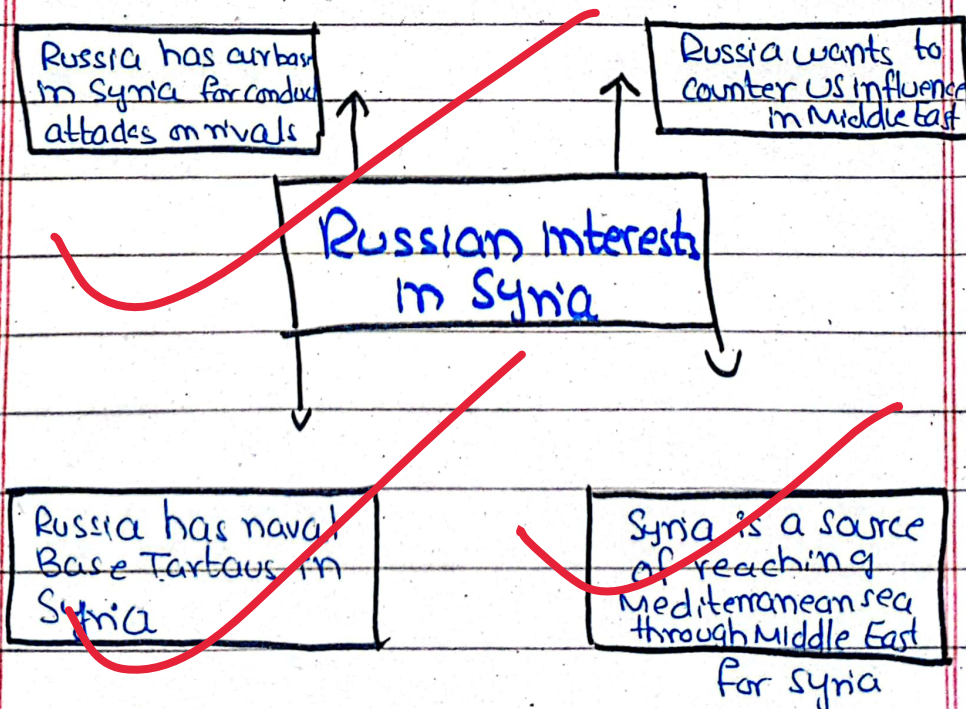 Russia has airbase
in Syria for conduct
attacks on rivals
Russia wants to
counter US influence
in Middle East
Russian interests
in Syria
Russia has naval
Base Tartaus in
Syria
Syria is a source
of reaching
Mediterranean sea
through Middle East
for Syria